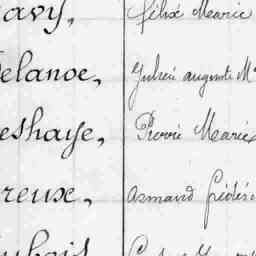 avy, félix Marie
elanoe, Julien auguste M
eshaye, Pierre Marie
reux, armand frédéri
ubois